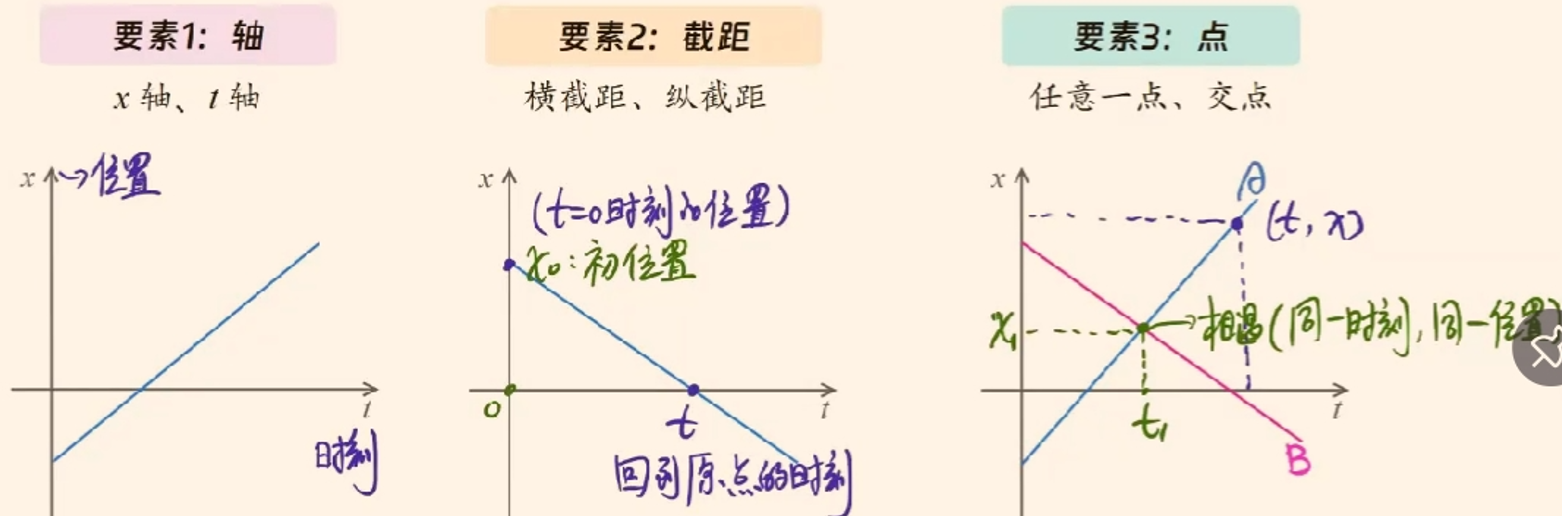 要素1：轴
x 轴、t 轴
x
→位置
t
时刻
要素2：截距
横截距、纵截距
x
(t=0时刻的位置)
x₀：初位置
0
t
t
回到原点的时刻
要素3：点
任意一点、交点
x
A
(t, x)
x₁
→相遇(同一时刻，同一位置)
t
t₁
B